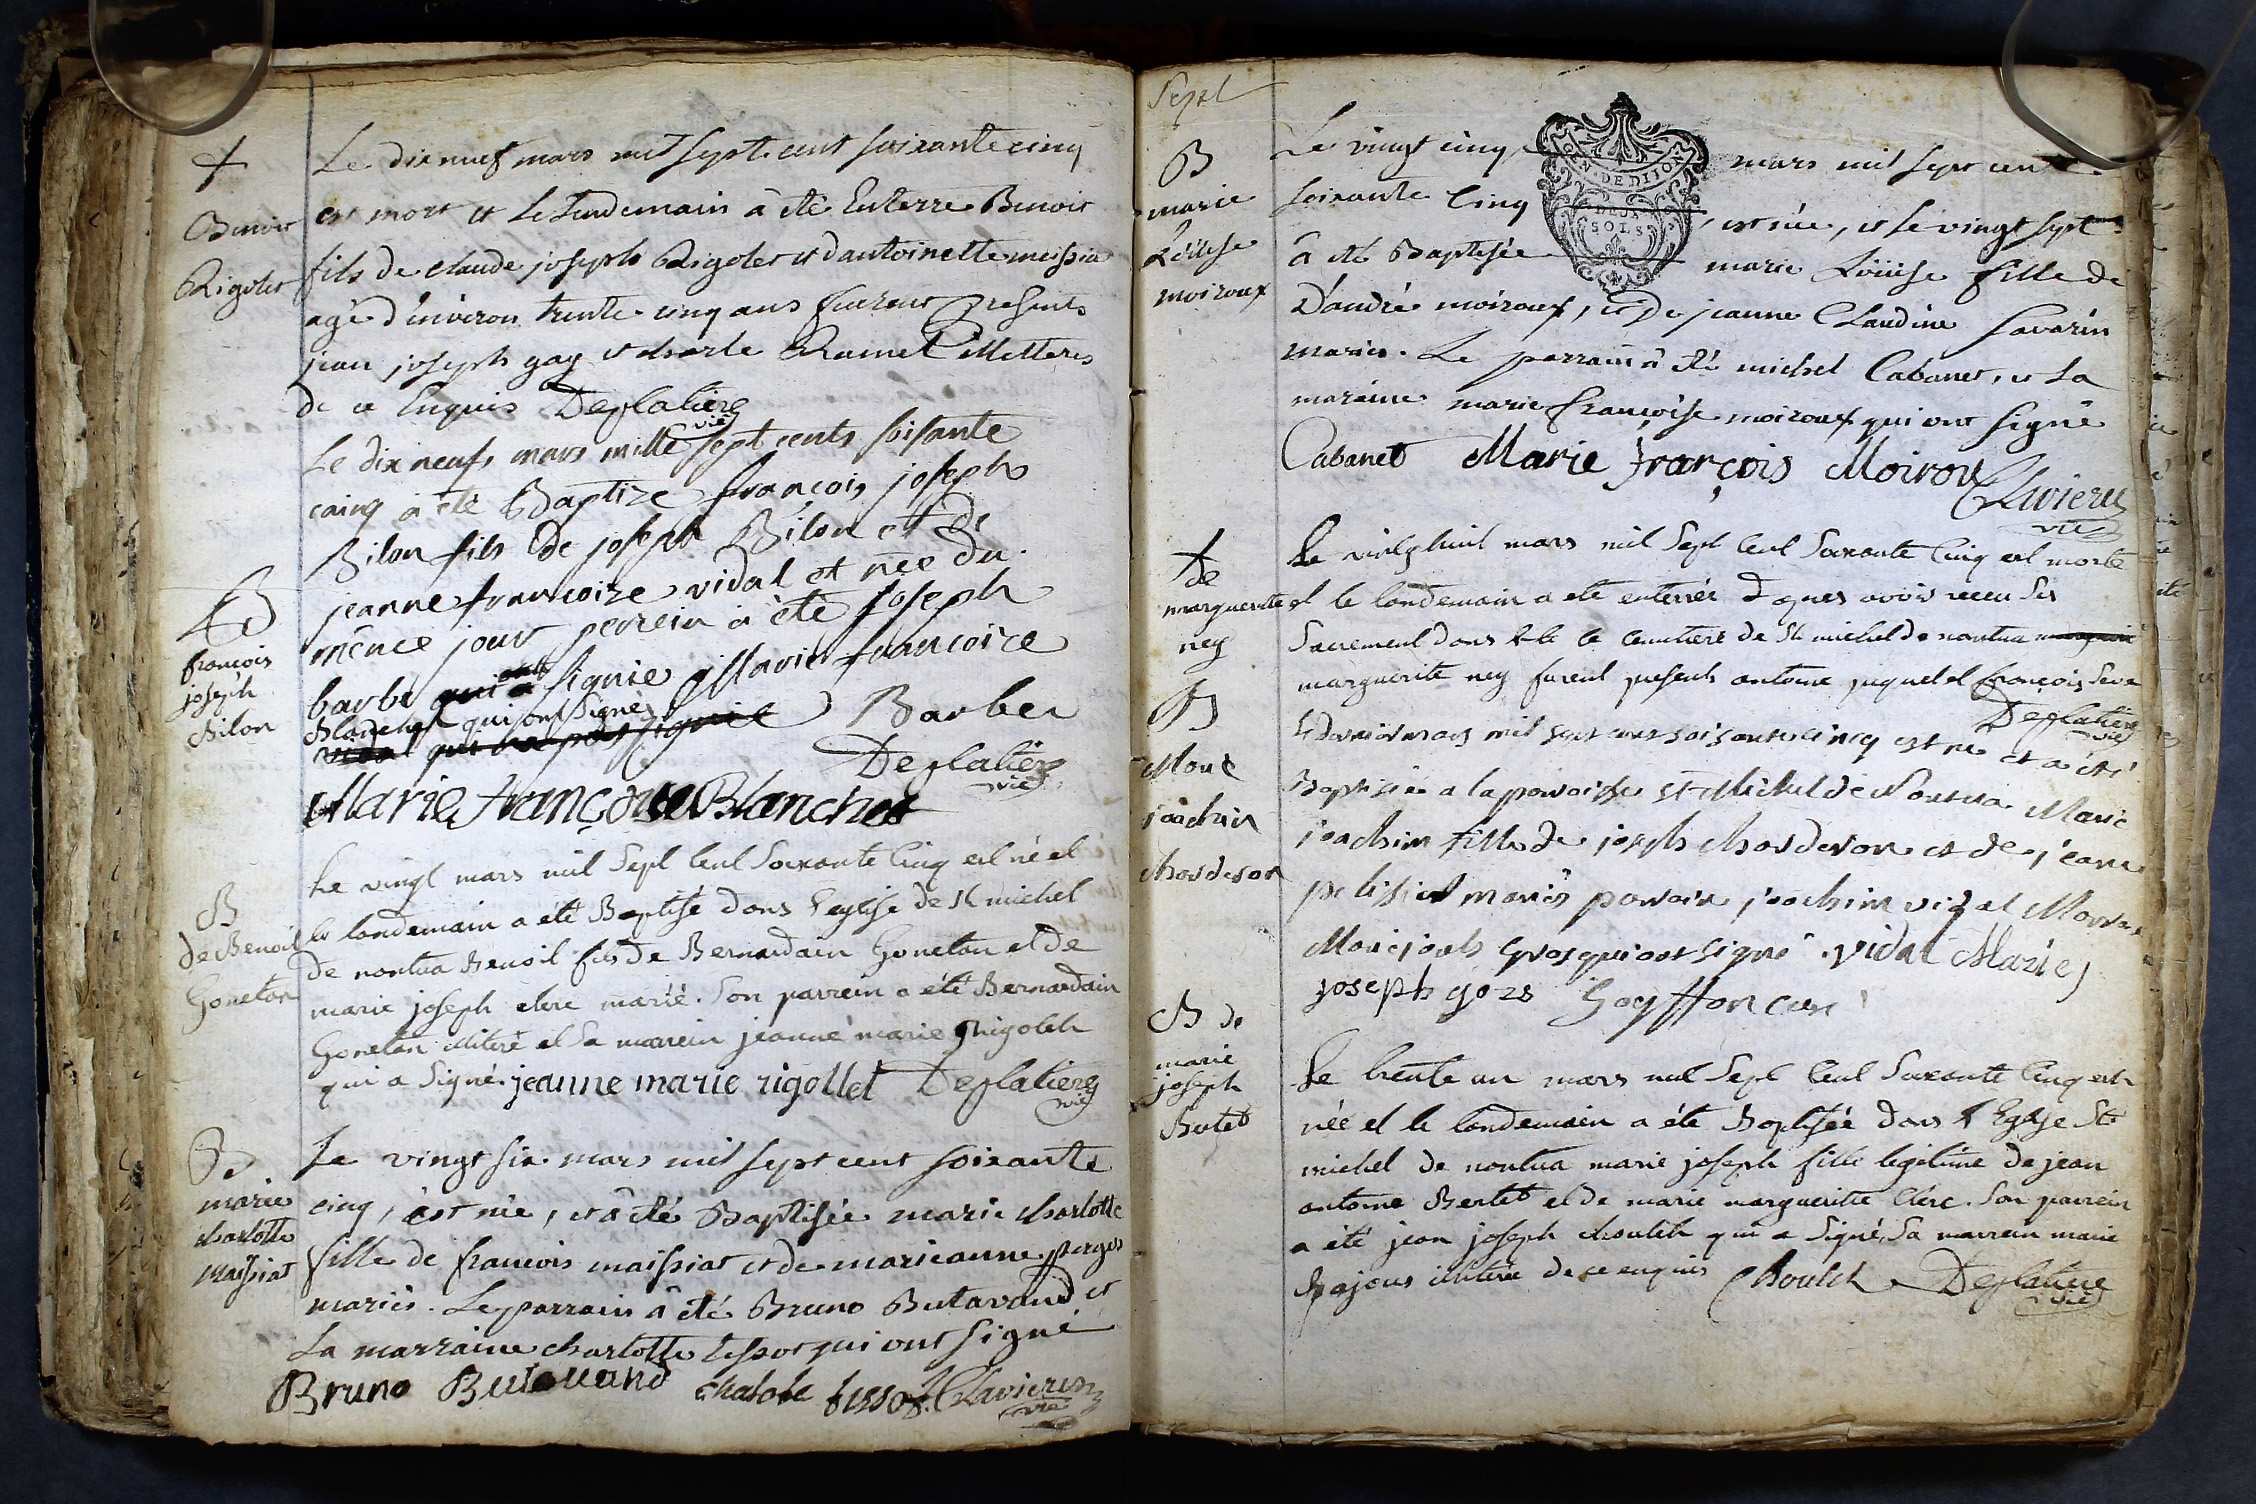 +
Benoit
Rigolet
Le dix neuf mars mil sept cent soixante cinq
est mort et le lendemain à été Enterre Benoit
fils de claude joseph Rigolet et d'antoinette meissiat
agé d'environ trente cinq ans furent presents
jean joseph gay et charle Ramel illettres
de ce Enquis Deplatiere
vic
B
francois
joseph
Bilon
Le dix neufs mars mille sept cents soisante
cainq a été Baptize françois joseph
Bilon fils de joseph Bilon et de
jeanne francoize vidal et née du
mêmce jour perrein a été joseph
barbe qui ont signie Marie francoize
Blanchet qui ont signés
vidal qui na pas signie Barbe
Deplatiere
vic
Marie Françoise Blanchet
B
de Benoit
Goneton
Le vingt mars mil Sept Cent Soixante Cinq est né et
le landemain a été Baptisé dans l'eglise de St michel
de nantua Benoit fils de Bernardain Gonetan et de
marie joseph clerc marié. Son parrein a été Bernardain
Gonetan illiteré et Sa marrein jeanne marie Rigoleh
qui a Signé. jeanne marie rigollet Deplatiere
vic
B
marie
charlotte
maissiat
Le vingt six mars mil sept cent soixante
cinq, est née, et a été Baptisée marie charlotte
fille de francois maissiat et de marieanne
mariés. Le parrain à été Bruno Butavand et
La marraine charlotte tissot qui ont signé
Bruno Butavand chalote tissot Clavieres
vic
Sept
B
marie
Loüise
moiroux
GEN. DE DIJON
DEUX
SOLS
Le vingt cinq mars mil sept cent
soixante Cinq, est née, et le vingt sept
â été Baptisée marie Loüise fille de
D'andré moiroux, et De jeanne Claudine Savarin
mariés. Le parrain â été michel Cabanet, et La
maraine marie françoise moiroux qui ont signé
Cabanet Marie françois Moiroux
Clavieres
vic
+
de
marguerite
ney
Le vintghuit mars mil Sept Cent Soixante Cinq est morte
et le landemain a eté enterrée d apres avoir receu Ses
Sacrement dans le cemetiere de St michel de nantua
marguerite ney furent presents antoine juquet et françois Seve
Deplatiere
vic
B
Marie
joachin
chordeson
Le dernier mars mil sept cent soisante cincq est ne et a été
Baptisiée a la paroisse St Michel de Nantua Marie
joachim fille de joseph chordeson et de jeane
pelissiet mariés parain joachim vidal Maren
Marie joseph gros qui ont signé. vidal Marie
joseph gors Goyffon curé
B de
marie
joseph
Butet
Le trente un mars mil Sept Cent Soixante Cinq est
née et le landemain a été Baptisée dans l'Eglise St
michel de nantua marie joseph fille legitime de jean
antoine Bertet et de marie margueritte Clérc. Son parrein
a été jean joseph chouleh qui a Signé, Sa marrein marie
pajous illiterée de ce enquis Choulet Deplatiere
vic